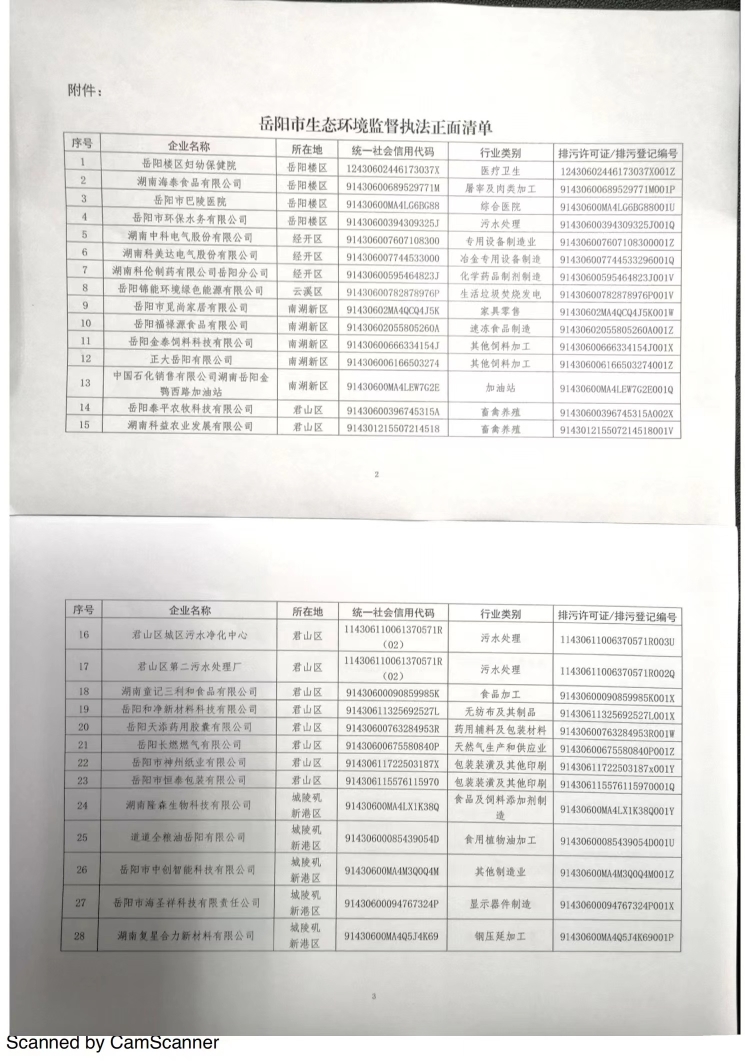 附件：
岳阳市生态环境监督执法正面清单
序号 企业名称 所在地 统一社会信用代码 行业类别 排污许可证/排污登记编号
1 岳阳楼区妇幼保健院 岳阳楼区 12430602446173037X 医疗卫生 12430602446173037X001Z
2 湖南海泰食品有限公司 岳阳楼区 91430600689529771M 屠宰及肉类加工 91430600689529771M001P
3 岳阳市巴陵医院 岳阳楼区 91430600MA4LG6BG88 综合医院 91430600MA4LG6BG88001U
4 岳阳市环保水务有限公司 岳阳楼区 91430600394309325J 污水处理 91430600394309325J001Q
5 湖南中科电气股份有限公司 经开区 914306007607108300 专用设备制造业 914306007607108300001Z
6 湖南科美达电气股份有限公司 经开区 914306007744533000 冶金专用设备制造 914306007744533296001Q
7 湖南科伦制药有限公司岳阳分公司 经开区 91430600595464823J 化学药品制剂制造 91430600595464823J001V
8 岳阳锦能环境绿色能源有限公司 云溪区 91430600782878976P 生活垃圾焚烧发电 91430600782878976P001V
9 岳阳市觅尚家居有限公司 南湖新区 91430602MA4QCQ4J5K 家具零售 91430602MA4QCQ4J5K001W
10 岳阳福禄源食品有限公司 南湖新区 91430602055805260A 速冻食品制造 91430602055805260A001Z
11 岳阳金泰饲料科技有限公司 南湖新区 91430600666334154J 其他饲料加工 91430600666334154J001X
12 正大岳阳有限公司 南湖新区 914306006166503274 其他饲料加工 914306006166503274001Z
13 中国石化销售有限公司湖南岳阳金
鹗西路加油站 南湖新区 91430600MA4LEW7G2E 加油站 91430600MA4LEW7G2E001Q
14 岳阳泰平农牧科技有限公司 君山区 91430600396745315A 畜禽养殖 91430600396745315A002X
15 湖南科益农业发展有限公司 君山区 914301215507214518 畜禽养殖 914301215507214518001V
2
序号 企业名称 所在地 统一社会信用代码 行业类别 排污许可证/排污登记编号
16 君山区城区污水净化中心 君山区 114306110061370571R
（02） 污水处理 11430611006370571R003U
17 君山区第二污水处理厂 君山区 114306110061370571R
（02） 污水处理 11430611006370571R002Q
18 湖南童记三利和食品有限公司 君山区 91430600090859985K 食品加工 91430600090859985K001X
19 岳阳和净新材料科技有限公司 君山区 91430611325692527L 无纺布及其制品 91430611325692527L001X
20 岳阳天添药用胶囊有限公司 君山区 91430600763284953R 药用辅料及包装材料 91430600763284953R001W
21 岳阳长燃燃气有限公司 君山区 91430600675580840P 天然气生产和供应业 91430600675580840P001Z
22 岳阳市神州纸业有限公司 君山区 91430611722503187X 包装装潢及其他印刷 91430611722503187x001Y
23 岳阳市恒泰包装有限公司 君山区 914306115576115970 包装装潢及其他印刷 914306115576115970001Q
24 湖南隆森生物科技有限公司 城陵矶
新港区 91430600MA4LX1K38Q 食品及饲料添加剂制
造 91430600MA4LX1K38Q001Y
25 道道全粮油岳阳有限公司 城陵矶
新港区 91430600085439054D 食用植物油加工 91430600085439054D001U
26 岳阳市中创智能科技有限公司 城陵矶
新港区 91430600MA4M3Q0Q4M 其他制造业 91430600MA4M3Q0Q4M001Z
27 岳阳市海圣祥科技有限责任公司 城陵矶
新港区 91430600094767324P 显示器件制造 91430600094767324P001X
28 湖南复星合力新材料有限公司 城陵矶
新港区 91430600MA4Q5J4K69 钢压延加工 91430600MA4Q5J4K69001P
3
Scanned by CamScanner